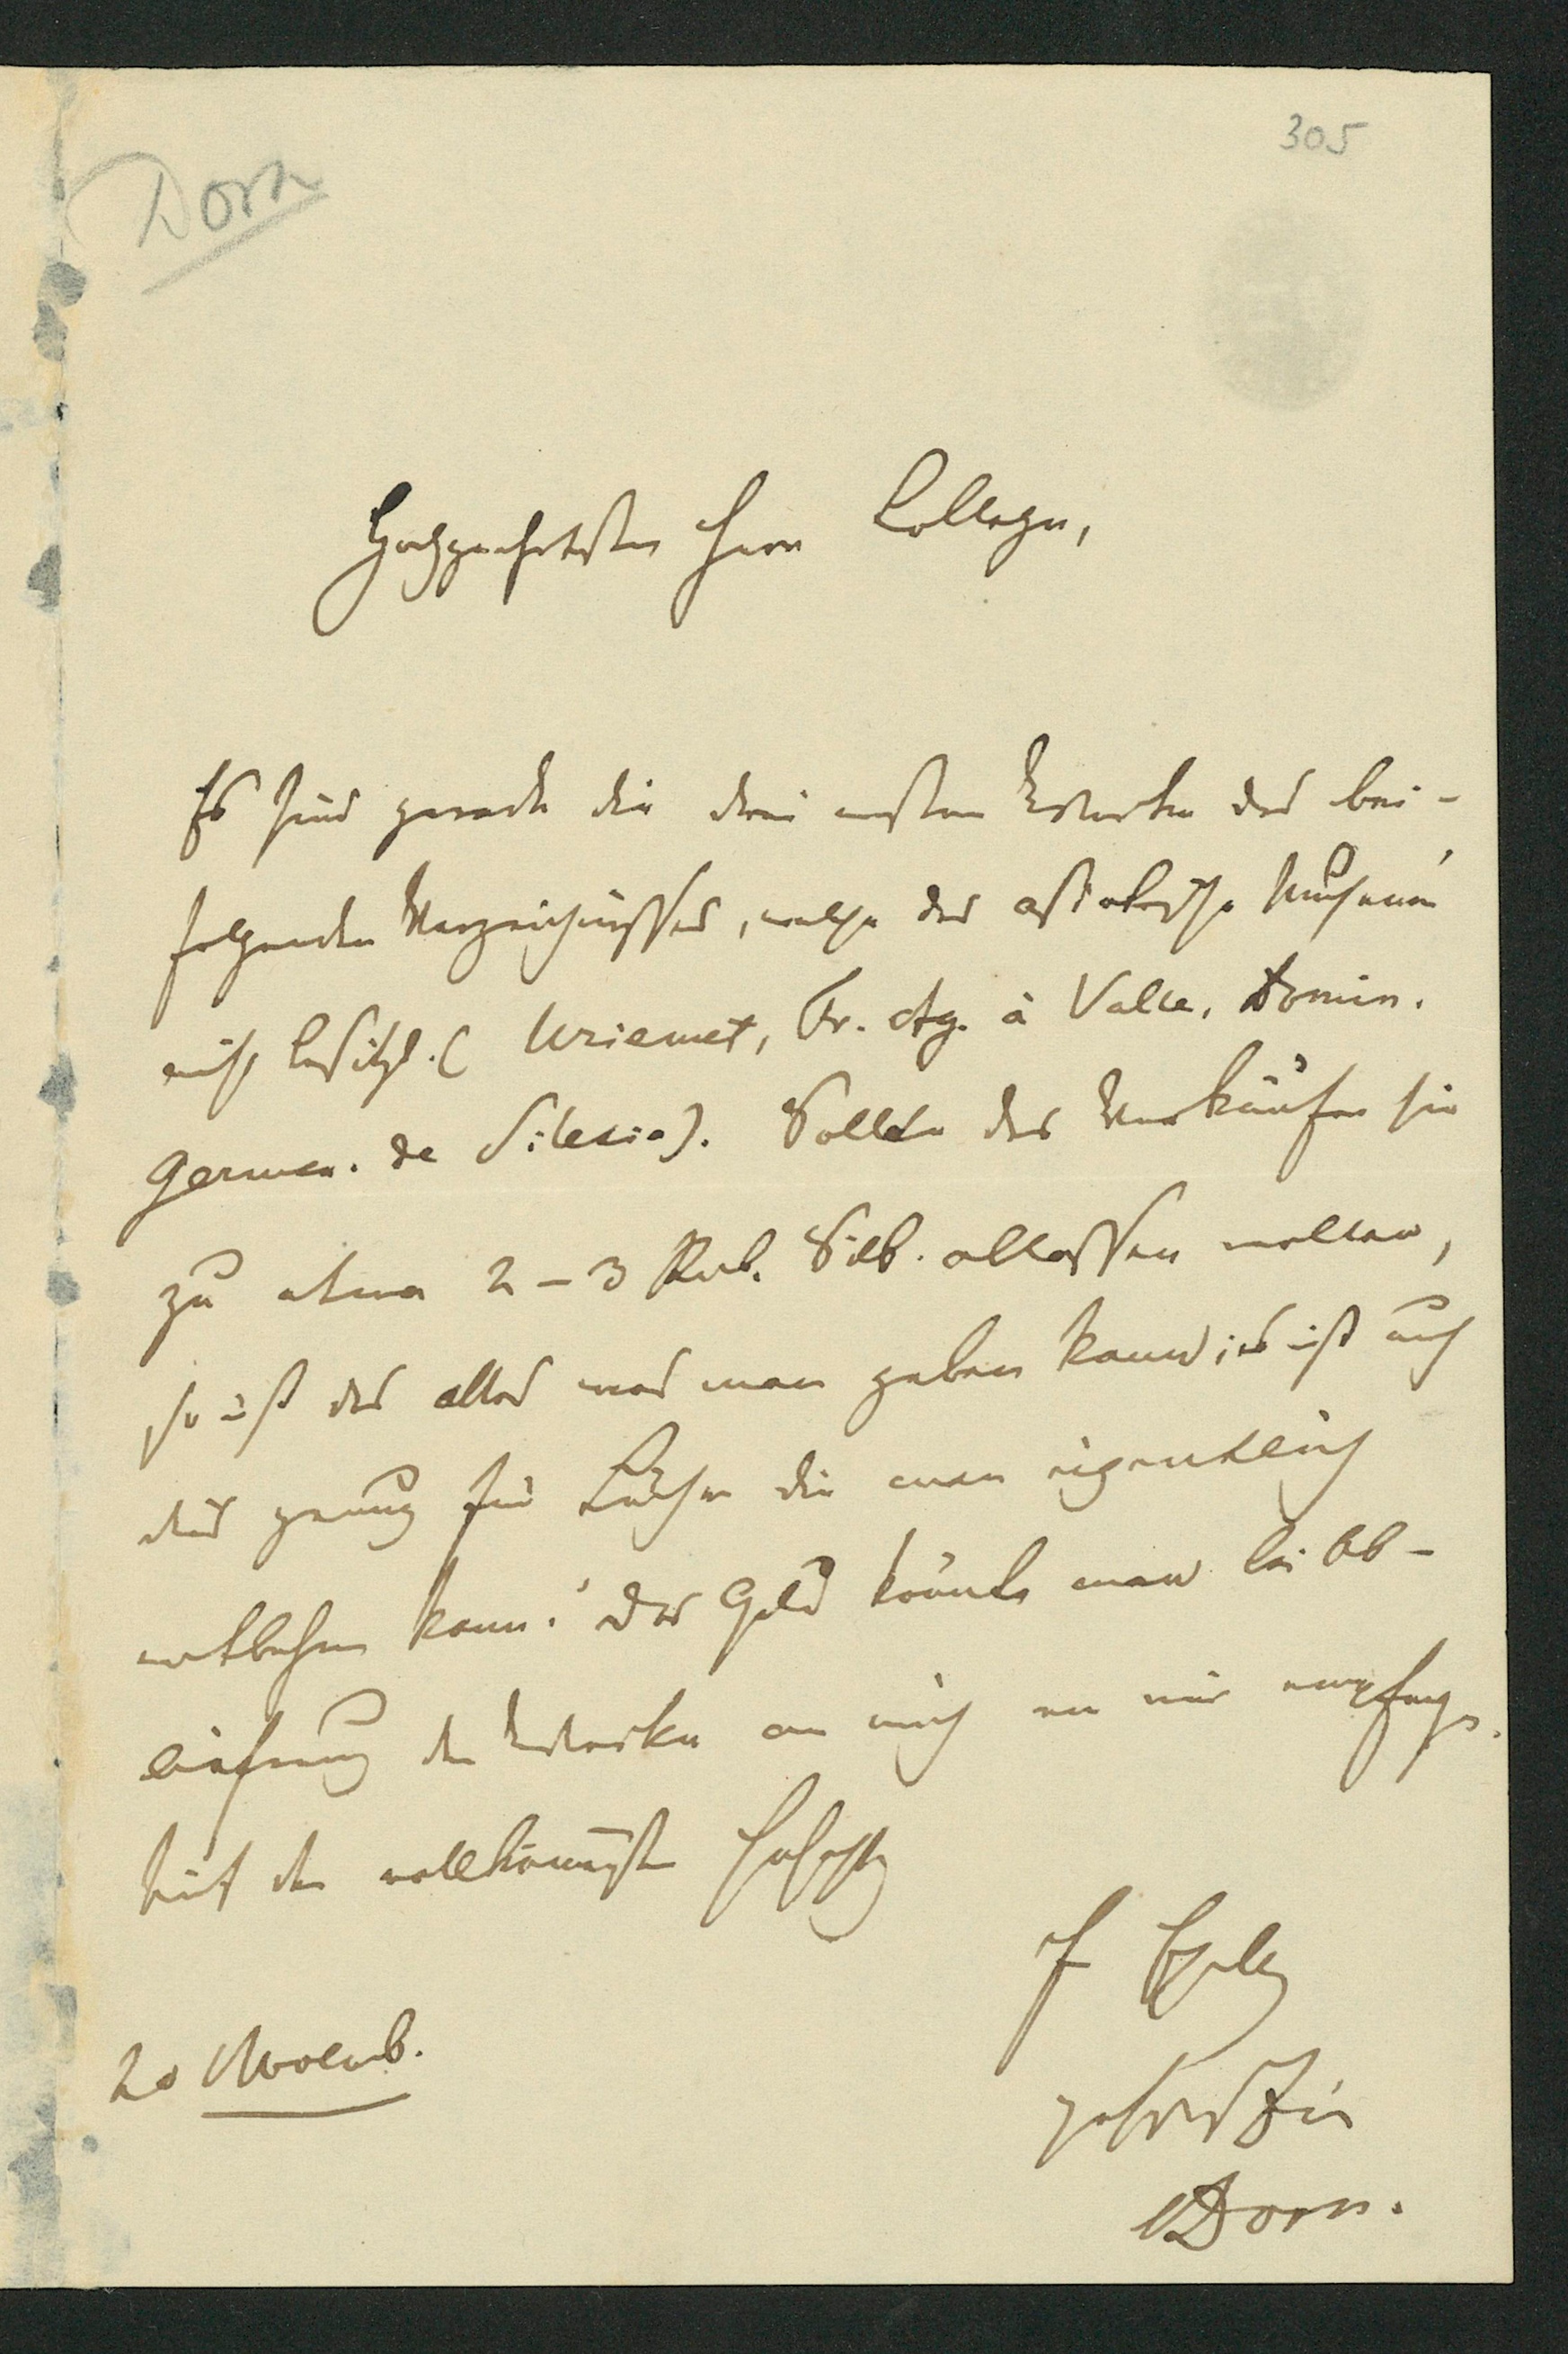 305
Dorn
Hochgeehrtester Herr College,
Es sind gerade die drei ersten Werke des bei-
folgenden Verzeichnisses, welche das asiatische Museum
nicht besitzt. ( Vriemet, Fr. Ag. à Valle, Domin.
German. de Silesia). Sollte der Verkäufer sie
zu etwa 2 – 3 Rub. Silb. ablassen wollen,
so ist das alles was man geben kann; es ist auch
das genug für Bücher die man eigentlich
entbehren kann. Das Geld könnte man bei Ab-
lieferung der Werke an mich von mir empfangen.
Mit der vollkommensten Hochachtg
Ew
gehorsamster
Dorn.
20 Novemb.